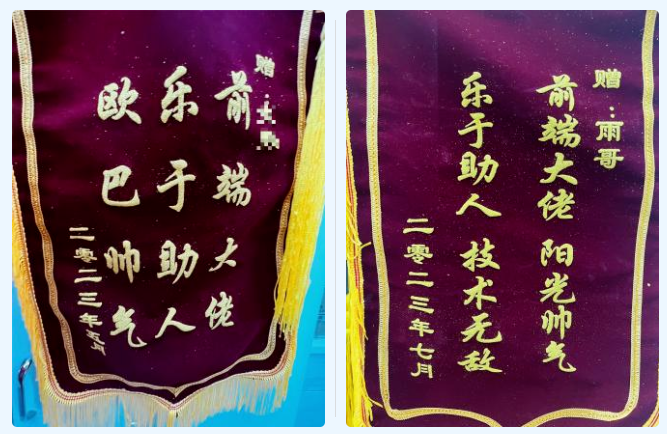 赠：
前端大佬
乐于助人
欧巴帅气
二零二三年五月
赠：雨哥
前端大佬 阳光帅气
乐于助人 技术无敌
二零二三年七月